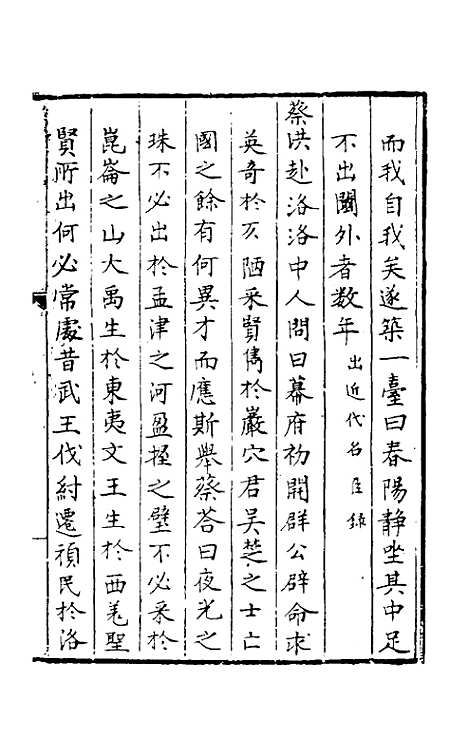 而我自我矣遂築一臺曰春陽静坐其中足
不出閫外者数年出近代名臣錄
蔡洪赴洛洛中人問曰幕府初開群公辟命求
英奇於仄陋采賢儁於巖穴君吳楚之士亡
國之餘有何異才而應斯舉蔡荅曰夜光之
珠不必出於孟津之河盈握之璧不必采於
崑崙之山大禹生於東夷文王生於西羗聖
賢所出何必常處昔武王伐紂遷頑民於洛